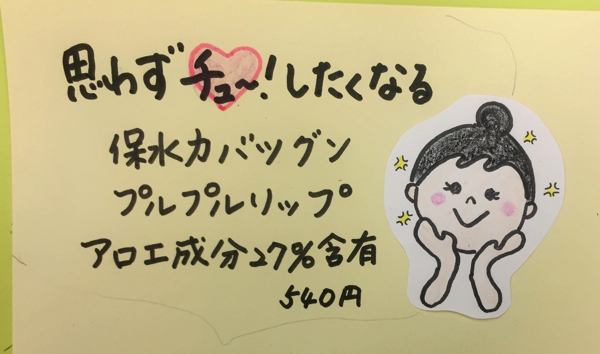 思わずチュ〜!したくなる
保水力バツグン
プルプルリップ
アロエ成分27%含有
540円